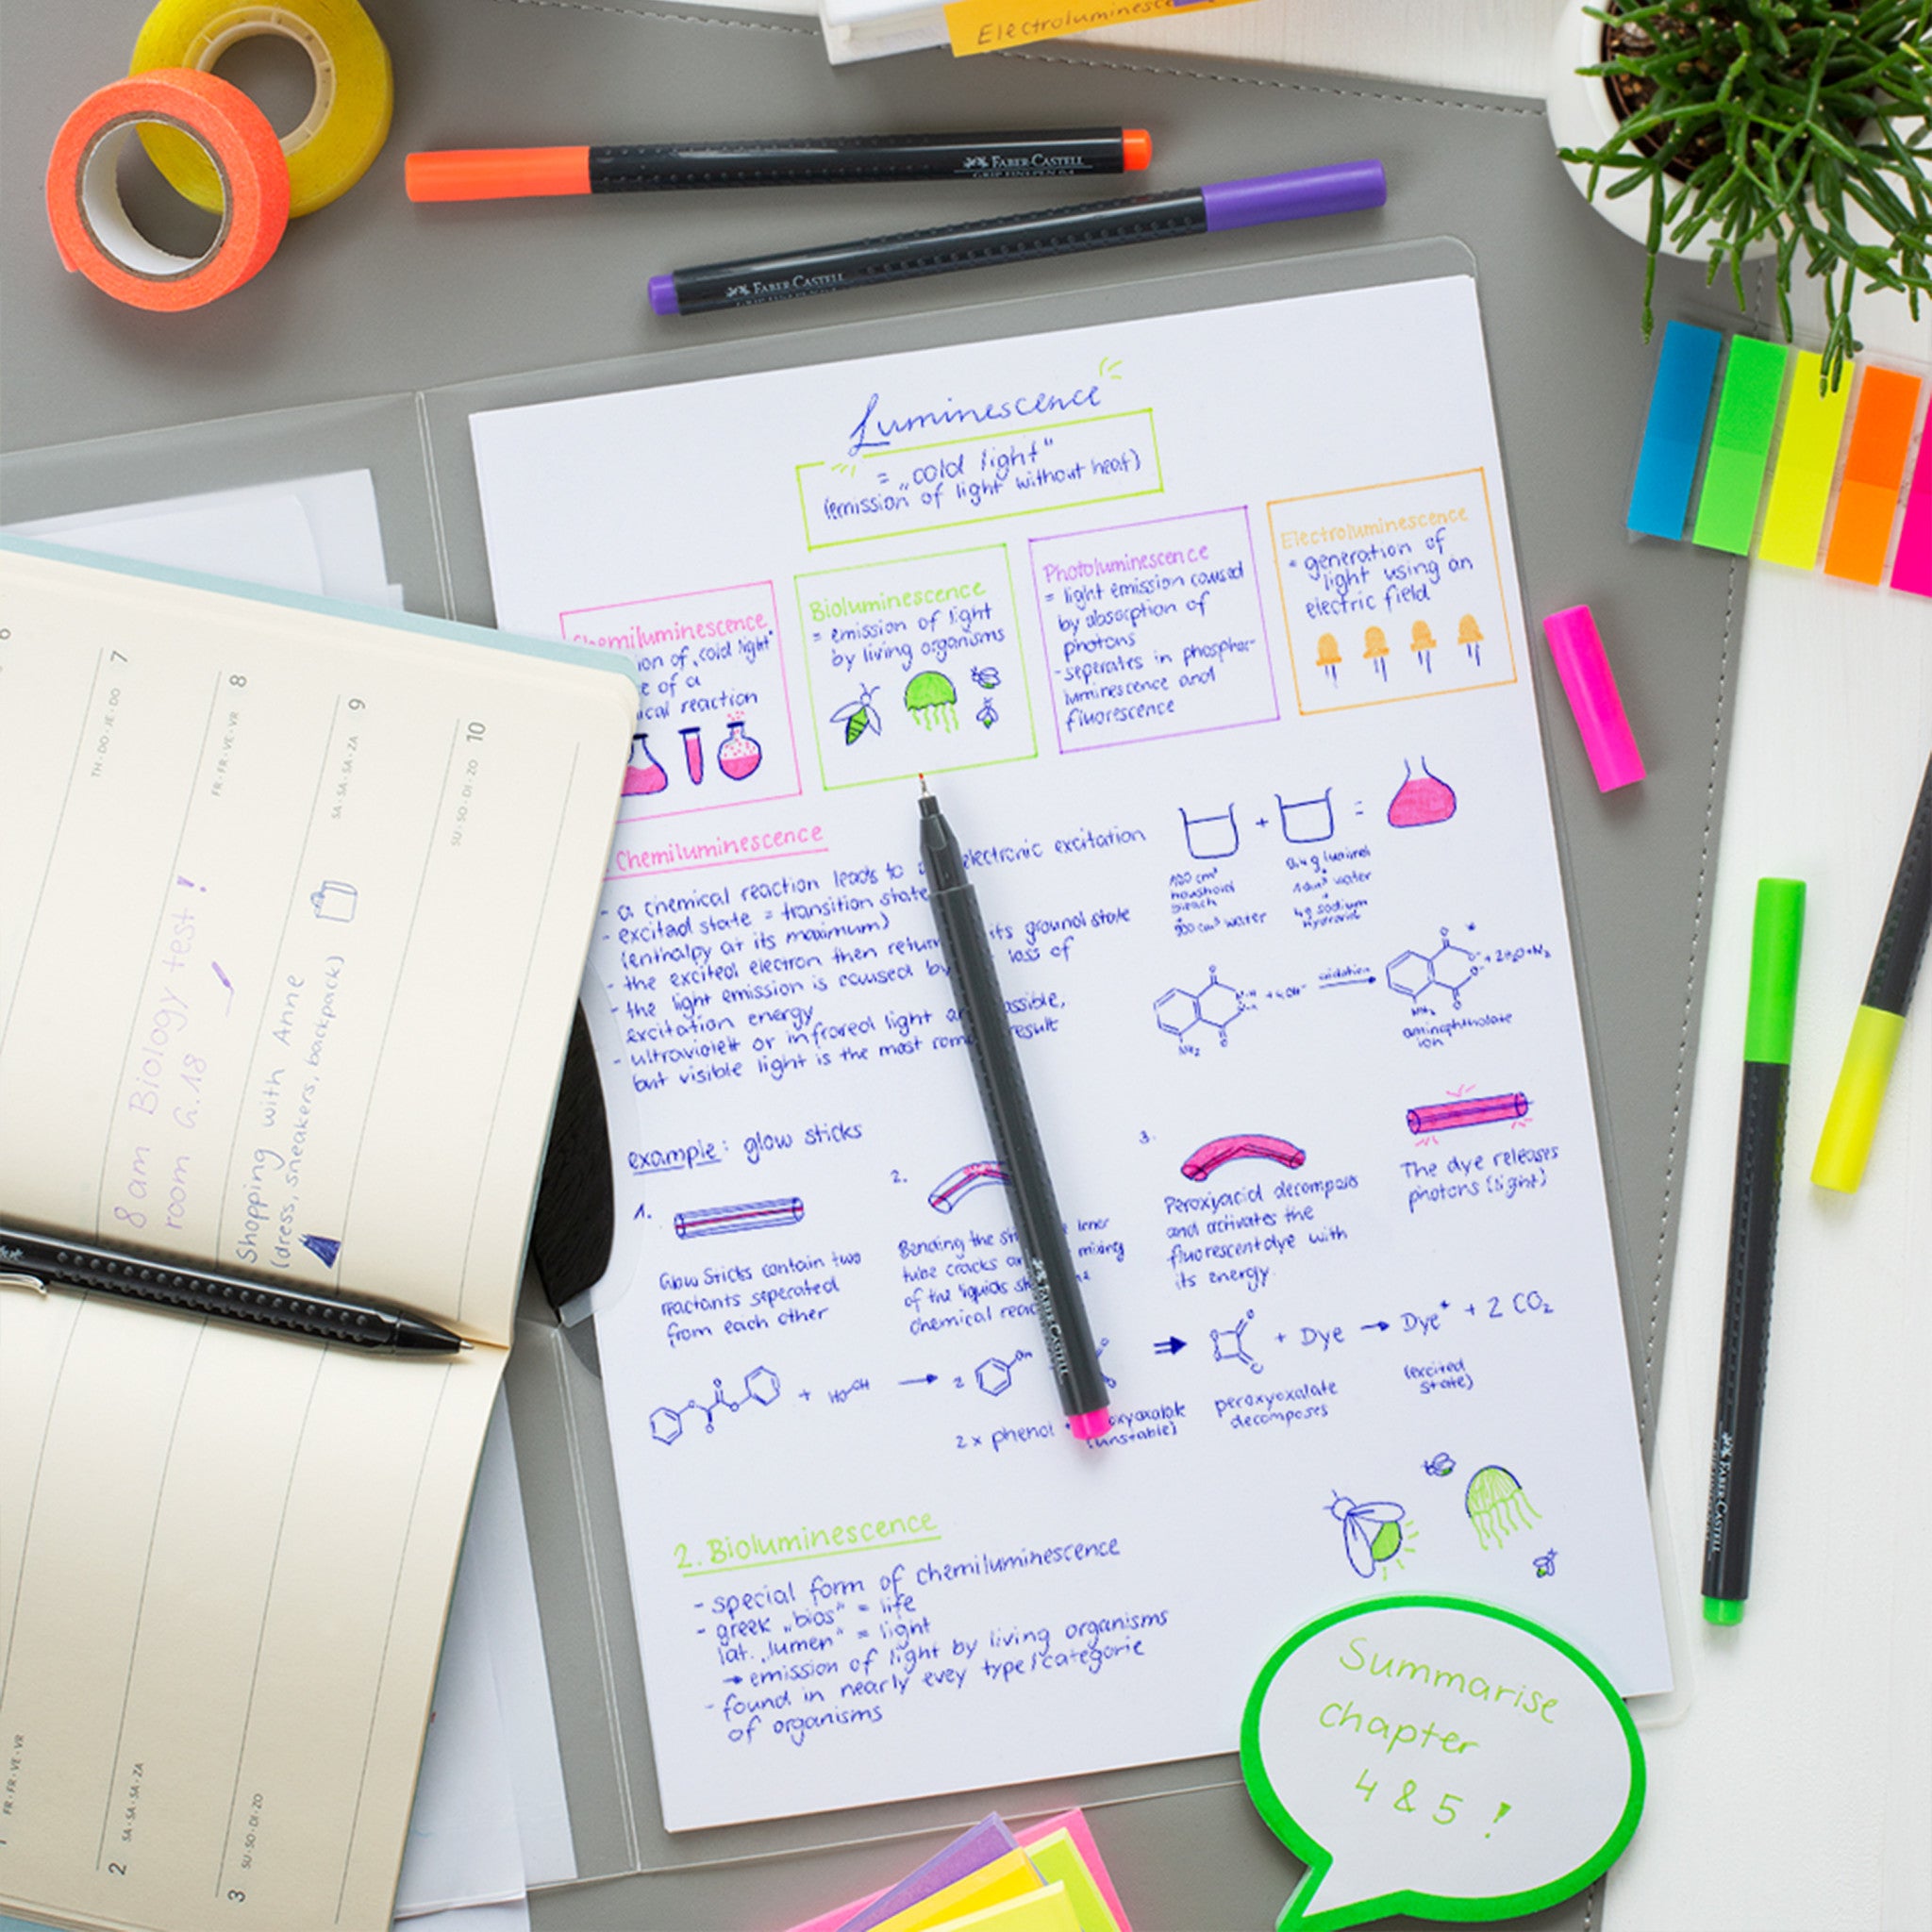 Electrolumines
FABER-CASTELL
GRIP FINEPEN 0.4
FABER-CASTELL
Luminescence
= „cold light"
(emission of light without heat)
Chemiluminescence
ion of „cold light"
e of a
ical reaction
Bioluminescence
= emission of light
by living organisms
Photoluminescence
= light emission caused
by absorption of
photons
- seperates in phosphor-
luminescence and
fluorescence
Electroluminescence
* generation of
light using an
electric field
Chemiluminescence
- a chemical reaction leads to electronic excitation
- excited state = transition state
(enthalpy at its maximum)
- the excited electron then return its ground state
- the light emission is caused by loss of
excitation energy
- ultraviolett or infrared light ar ossible,
but visible light is the most com result
+ =
100 cm³
houshold
bleach
+
900 cm³ water
0.4 g luminol
+
water
+
4g sodium
hydroxide
NH₂
oxidation
NH₂
+ 2H₂O + N₂
aminophthalate
ion
example: glow sticks
1.
Glow Sticks contain two
reactants seperated
from each other
2.
Bending the sti inner
tube cracks an mixing
of the liquids st
chemical reac
3.
Peroxyacid decomposes
and activates the
fluorescent dye with
its energy.
The dye releases
photons (light)
+ → 2
⇒ + Dye → Dye* + 2 CO₂
2 x phenol + oxyoxalate
(unstable)
peroxyoxalate
decomposes
(excited
state)
2. Bioluminescence
- special form of chemiluminescence
- greek „bios" = life
lat. „lumen" = light
→ emission of light by living organisms
- found in nearly evey type/categorie
of organisms
Summarise
chapter
4 & 5 !
TH · DO · JE · DO 7
FR · FR · VE · VR 8
8 am Biology test!
room G.18
SA · SA · SA · ZA 9
Shopping with Anne
(dress, sneakers, backpack)
SU · SO · DI · ZO 10
1 FR · FR · VE · VR
2 SA · SA · SA · ZA
3 SU · SO · DI · ZO
FABER-CASTELL
FABER-CASTELL